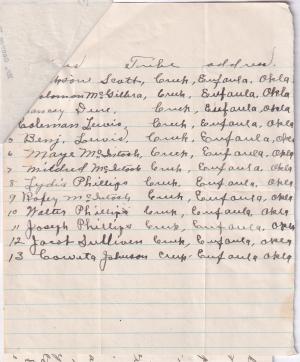 Tribe address
Scott, Creek, Eufaula, Okla
Solomon McGilbra, Creek, Eufaula, Okla
Creek, Eufaula, Okla
Coleman Lewis, Creek, Eufaula, Okla
5 Benj. Lewis, Creek, Eufaula, Okla
6 Maye McIntosh, Creek, Eufaula, Okla
7 Mildred McIntosh Creek, Eufaula, Okla
8 Lydia Phillips Creek, Eufaula, Okla
9 Roley McIntosh Creek, Eufaula, Okla
10 Walter Phillips Creek, Eufaula, Okla
11 Joseph Phillips Creek, Eufaula, Okla
12 Jacob Sullivan Creek, Eufaula, Okla
13 Coweta Johnson Creek Eufaula Okla